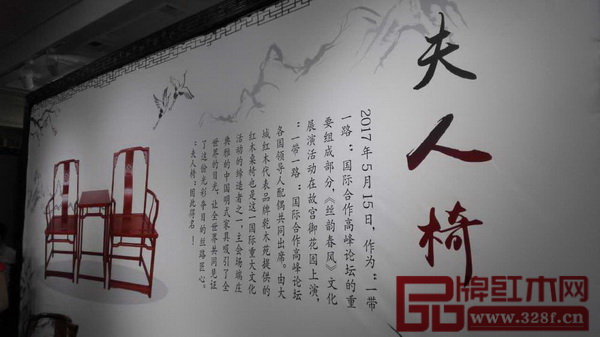 夫人椅
2017年5月15日，作为“一带
一路”国际合作高峰论坛的重
要组成部分，《丝韵春风》文化
展演活动在故宫御花园上演，
“一带一路”国际合作高峰论坛
各国领导人配偶共同出席。由大
城红木代表品牌乾术苑提供的
红木桌椅也是这一国际重大文化
活动的缔造者之一，主会场端庄
典雅的中国明式家具吸引了全
世界的目光，让全世界共同见证
了这份光彩夺目的丝路匠心。
“夫人椅”因此得名！
品牌红木网
www.328f.cn